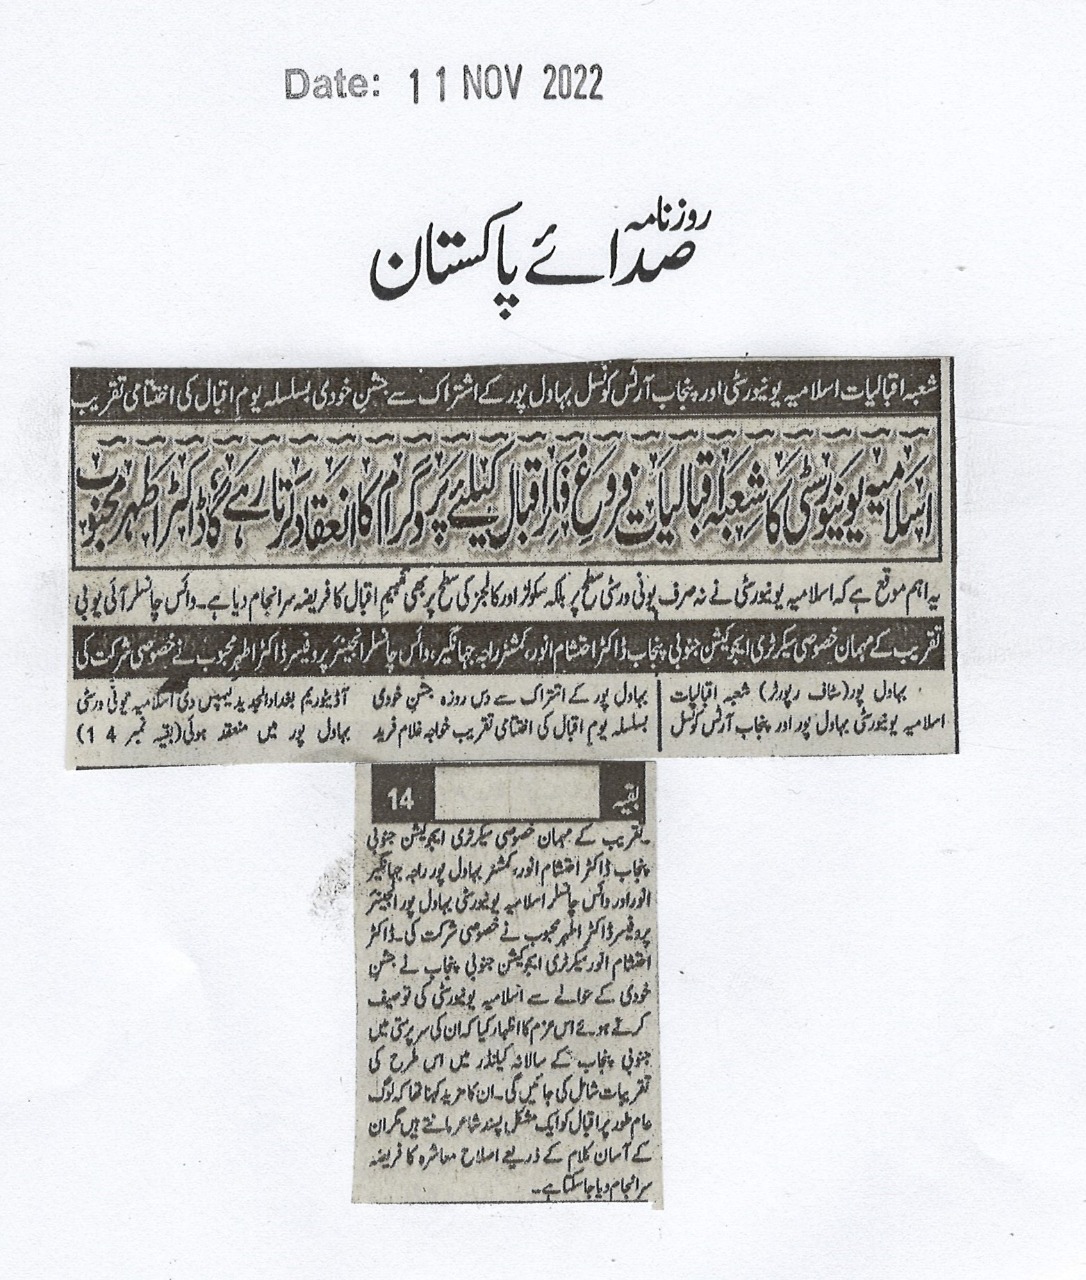 Date: 11 NOV 2022
روزنامہ
صدائے پاکستان
شعبہ اقبالیات اسلامیہ یونیورسٹی اور پنجاب آرٹس کونسل بہاول پور کے اشتراک سے جشن خودی بسلسلہ یوم اقبال کی اختتامی تقریب
اسلامیہ یونیورسٹی کا شعبہ اقبالیات فروغ فکر اقبال کیلئے پروگرام کا انعقاد کرتا رہے گا ڈاکٹر اطہر محبوب
یہ اہم موقع ہے کہ اسلامیہ یونیورسٹی نے نہ صرف یونی ورسٹی سطح پر بلکہ سکولز اور کالجز کی سطح پر بھی تفہیم اقبال کا فریضہ سرانجام دیا ہے۔ وائس چانسلر آئی یو بی
تقریب کے مہمان خصوصی سیکرٹری ایجوکیشن جنوبی پنجاب ڈاکٹر احتشام انور، کمشنر راجہ جہانگیر، وائس چانسلر انجینئر پروفیسر ڈاکٹر اطہر محبوب نے خصوصی شرکت کی
بہاول پور (سٹاف رپورٹر) شعبہ اقبالیات
اسلامیہ یونیورسٹی بہاول پور اور پنجاب آرٹس کونسل
بہاول پور کے اشتراک سے دس روزہ جشن خودی
بسلسلہ یوم اقبال کی اختتامی تقریب خواجہ غلام فرید
آڈیٹوریم بغداد الجدید کیمپس دی اسلامیہ یونی ورسٹی
بہاول پور میں منعقد ہوئی (بقیہ نمبر 14)
بقیہ 14
۔تقریب کے مہمان خصوصی سیکرٹری ایجوکیشن جنوبی
پنجاب ڈاکٹر احتشام انور، کمشنر بہاول پور راجہ جہانگیر
انور اور وائس چانسلر اسلامیہ یونیورسٹی بہاول پور انجینئر
پروفیسر ڈاکٹر اطہر محبوب نے خصوصی شرکت کی۔ ڈاکٹر
احتشام انور سیکرٹری ایجوکیشن جنوبی پنجاب نے جشن
خودی کے حوالے سے اسلامیہ یونیورسٹی کی توصیف
کرتے ہوئے اس عزم کا اظہار کیا کہ ان کی سرپرستی میں
جنوبی پنجاب کے سالانہ کیلنڈر میں اس طرح کی
تقریبات شامل کی جائیں گی۔ ان کا مزید کہنا تھا کہ لوگ
عام طور پر اقبال کو ایک مشکل پسند شاعر مانتے ہیں مگر ان
کے آسان کلام کے ذریعے اصلاح معاشرہ کا فریضہ
سرانجام دیا جاسکتا ہے۔